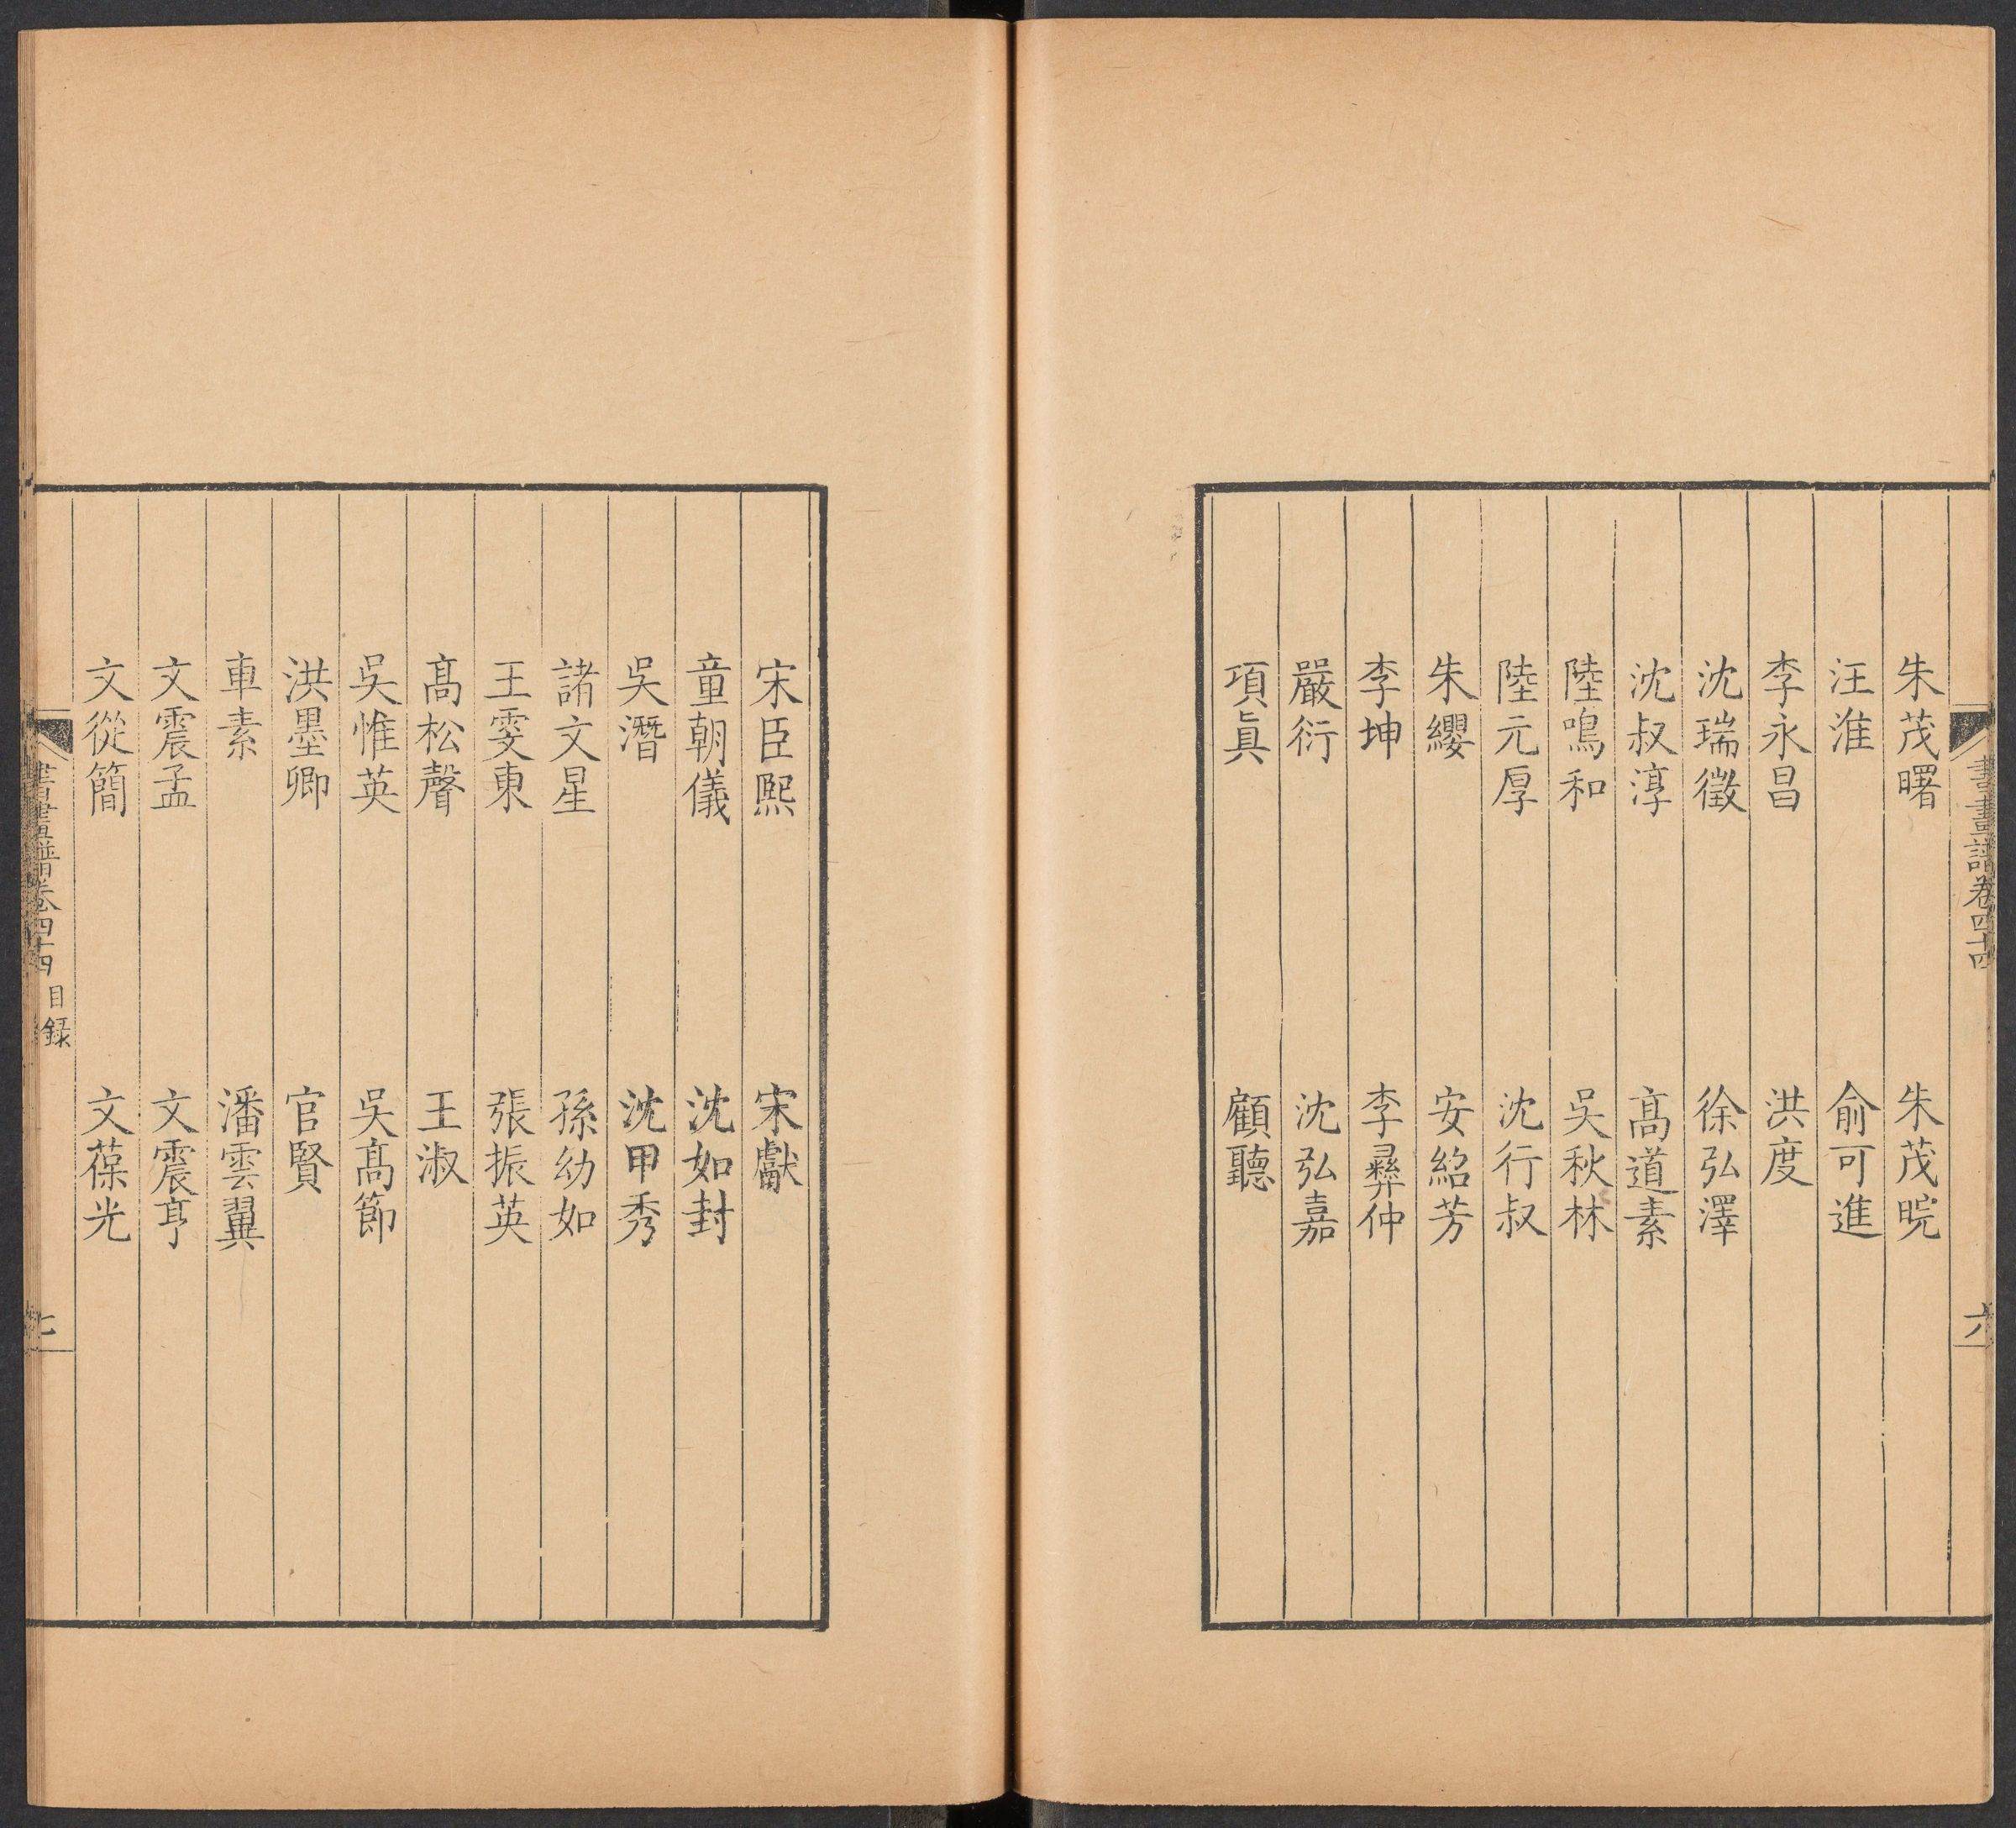 書畫譜卷四十四
六
朱茂曙 朱茂晥
汪淮 俞可進
李永昌 洪度
沈瑞徵 徐弘澤
沈叔淳 髙道素
陸鳴和 吳秋林
陸元厚 沈行叔
朱纓 安紹芳
李坤 李彛仲
嚴衍 沈弘嘉
項眞 顧聽
宋臣熙 宋獻
童朝儀 沈如封
吳潛 沈甲秀
諸文星 孫幼如
王雯東 張振英
髙松聲 王淑
吳惟英 吳髙節
洪墨卿 官賢
車素 潘雲翼
文震孟 文震亨
文從簡 文葆光
書畫譜卷四十四 目録
七